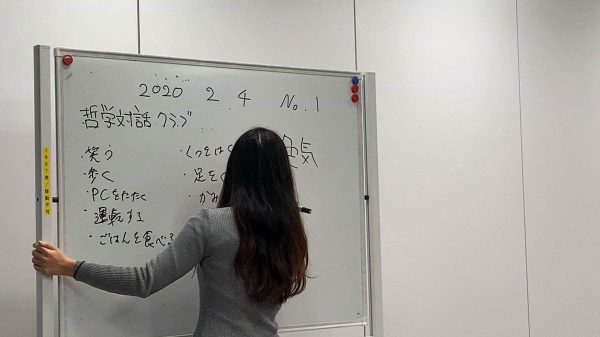 2020 2.4 No.1
哲学対話クラブ
・笑う
・歩く
・PCをたたく
・運転する
・ごはんを食べる
・くつをはく
・足を
・かみ
色気